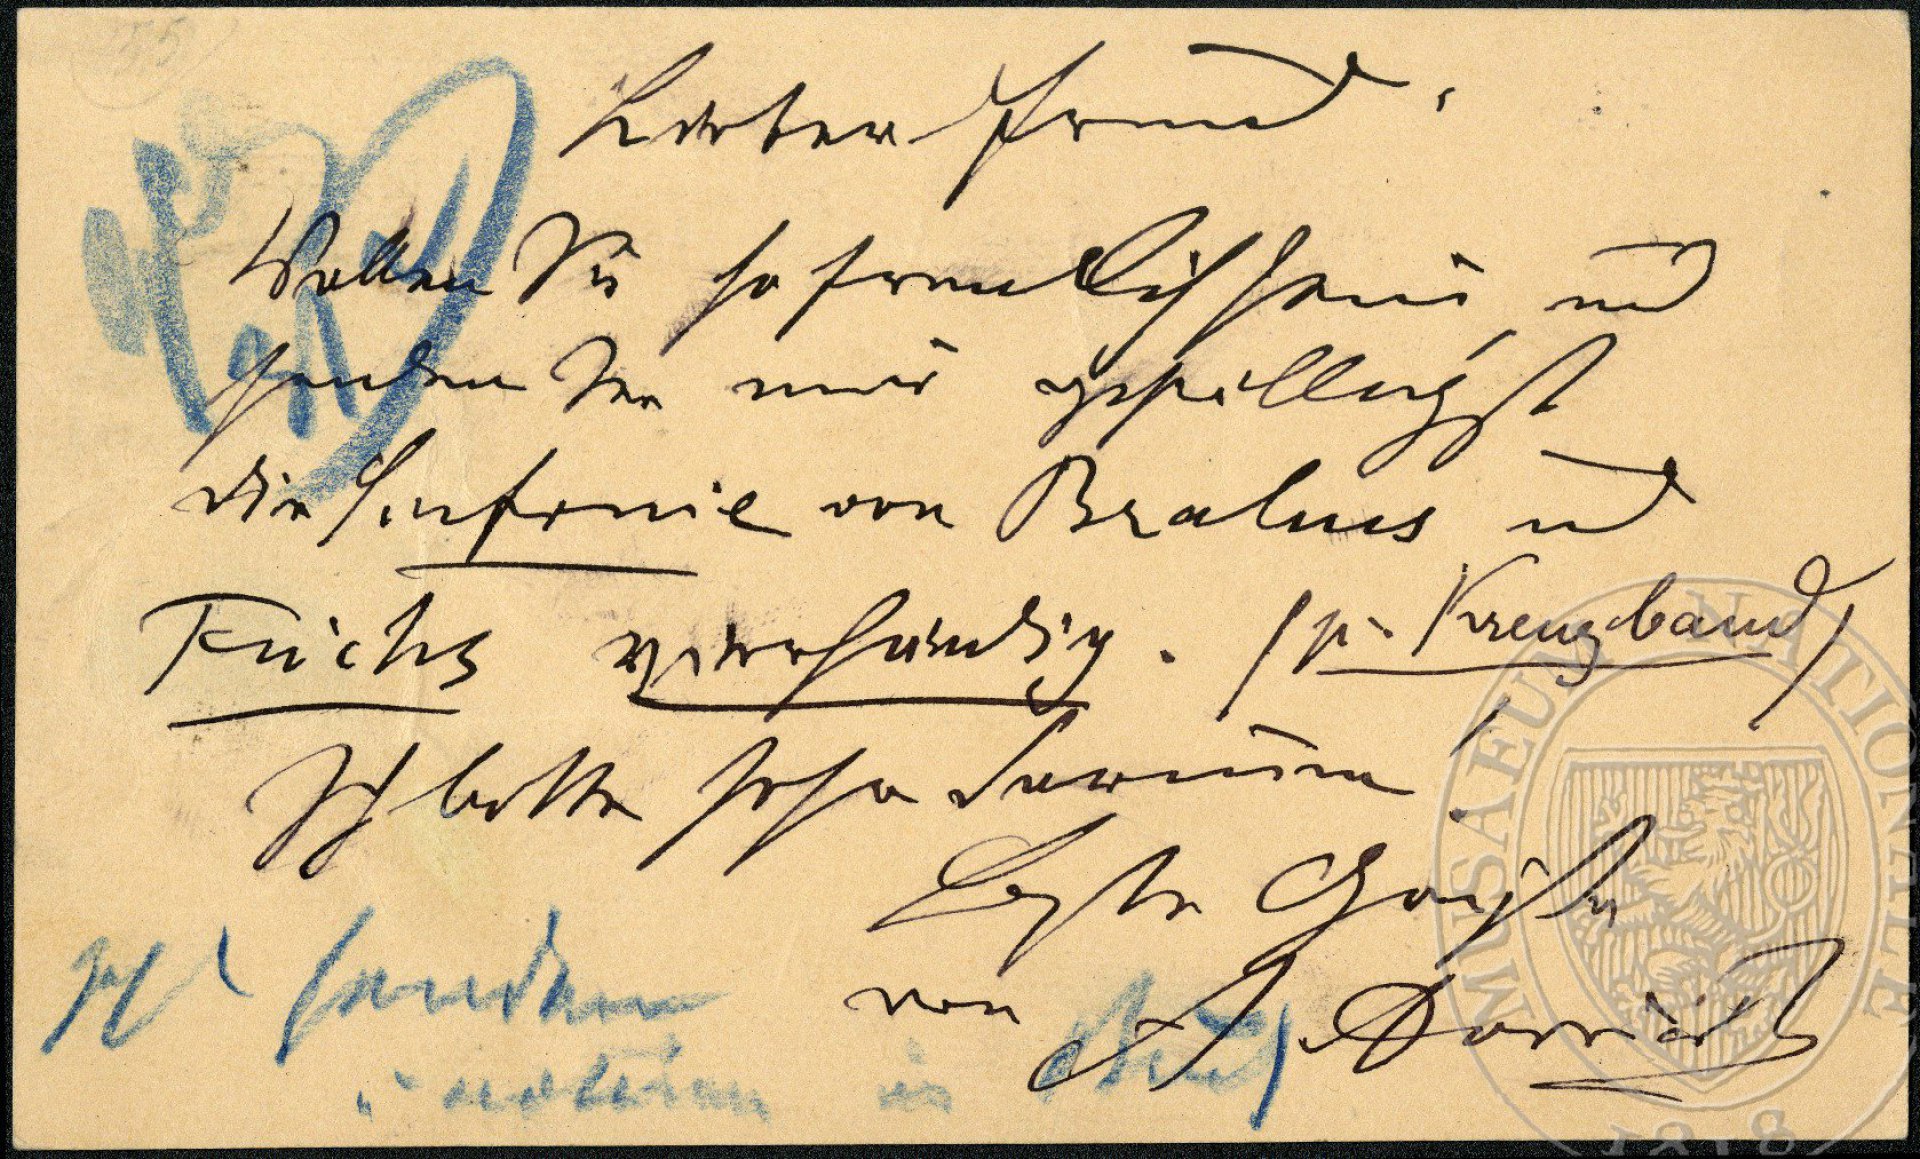 Lieber Freund!
Wollen Sie so freundlich sein, und
senden Sie mir gefälligst
die Sinfonie von Brahms und
Fuchs vierhändig. (p. Kreuzband)
Ich bitte sehr darum!
Beste Grüße
von A. Dvořák
senden
notieren in
MUSAEUM NATIONALE
1818